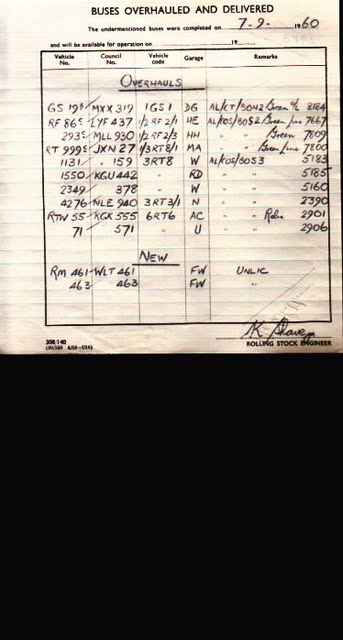 BUSES OVERHAULED AND DELIVERED
The undermentioned buses were completed on 7-9- 1960
and will be available for operation on 19
Vehicle No. Council No. Vehicle code Garage Remarks
OVERHAULS
GS 19 MXX 319 1GS1 DG AL/CT/30N2 Green 8184
RF 865 LYF 437 1/2RF2/1 HE AL/COS/30S2 Green Line 7667
293 MLL 930 1/2RF2/3 HH " " Green 7809
RT 999 JXN 27 1/3RT8/1 MA " " Green Line 7800
1131 " 159 3RT8 W AL/ROS/30S3 5183
1550 KGU 442 " RD " " 5185
2349 378 " W " " 5160
4276 NLE 940 3RT3/1 N " " 2390
RTW 55 KGK 555 6RT6 AC " " 2901
71 571 " U " " 2906
NEW
RM 461 WLT 461 FW UNLIC
463 463 FW "
ROLLING STOCK ENGINEER